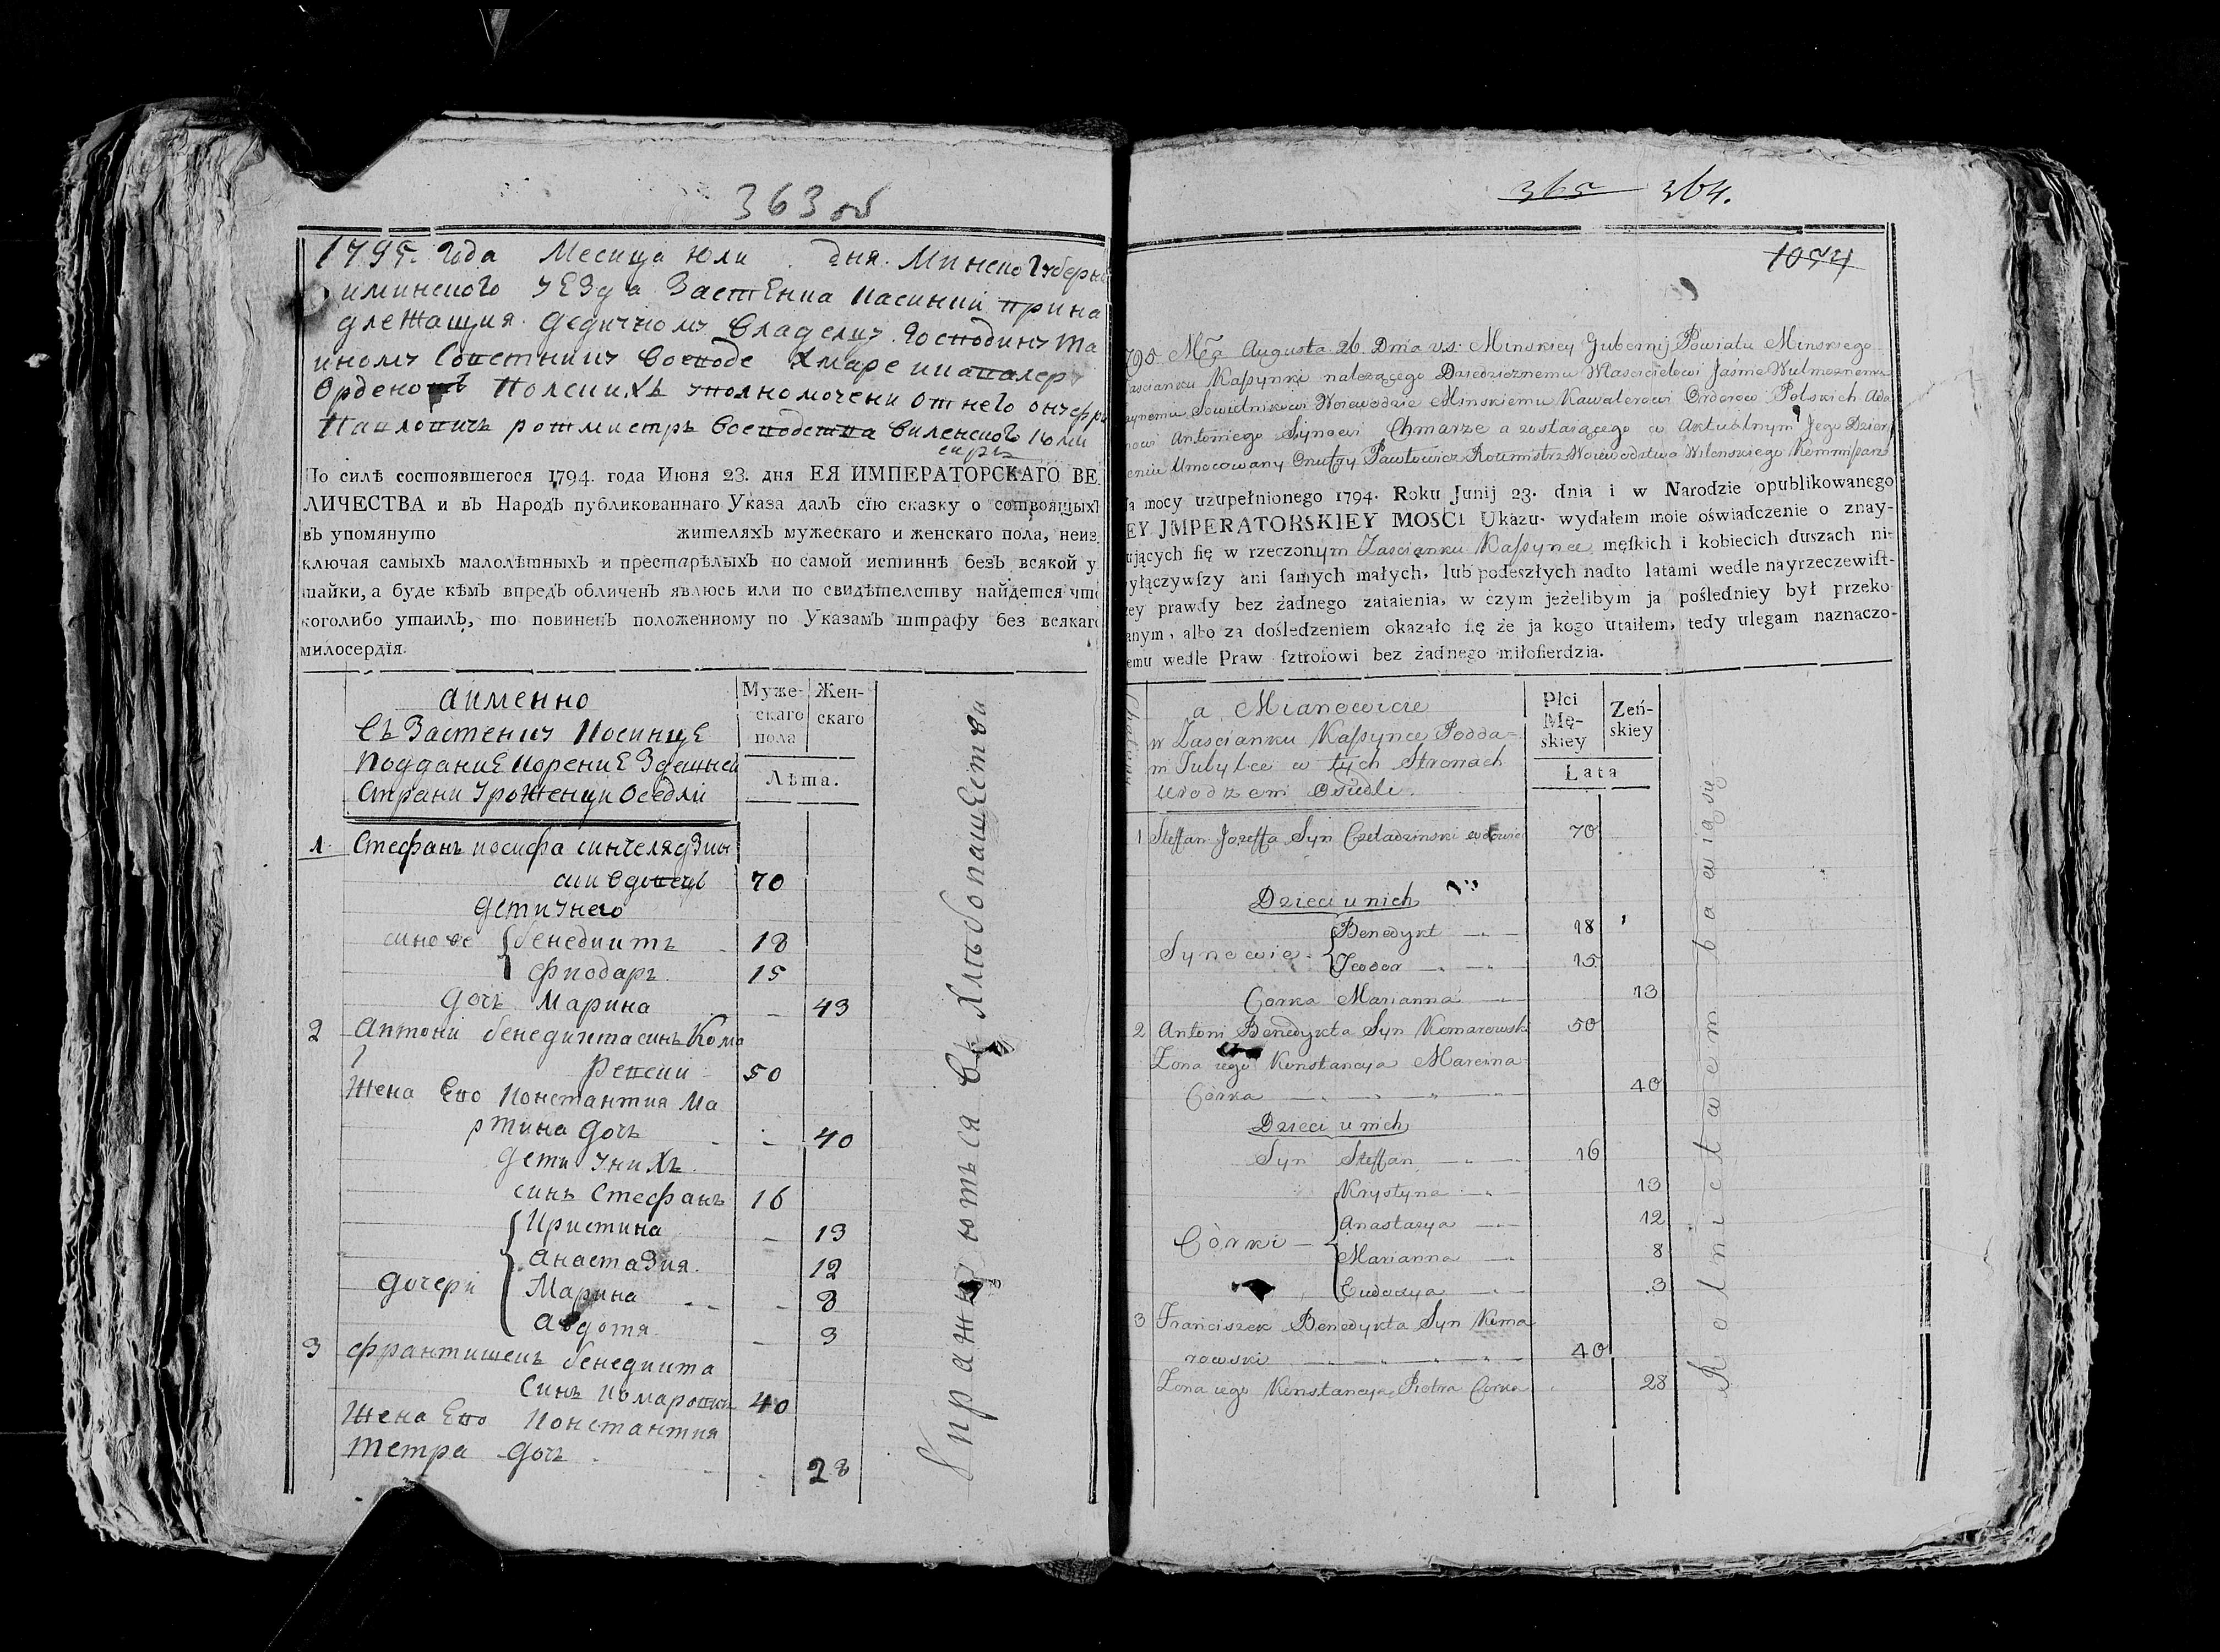 363 об
1795. Года Месяца Юли дня. Минско Губерни
иминского уезда Застенка Касинки прина
длежащия. дедичному Владелцу Господину Та
иному Советнику Воеводе Хмаре икавалеру
Орденовъ Полскихъ уполномочени отнего онуфри
Павловичъ ротмистръ Воеводства Виленского Коми
сиръ
По силѣ состоявшегося 1794. года Июня 23. дня ЕЯ ИМПЕРАТОРСКАГО ВЕ
ЛИЧЕСТВА и въ Народъ публикованнаго Указа далъ сїю сказку о состоящихъ
въ упомянуто жителяхъ мужескаго и женскаго пола, неиз
ключая самыхъ малолѣтныхъ и престарѣлыхъ по самой истиннѣ безъ всякой у
тайки, а буде кѣмъ впредь обличенъ явлюсь или по свидѣтелству найдется что
коголибо утаилъ, то повиненъ положенному по Указамъ штрафу без всякаго
милосердїя.
аименно
Муже-
скаго
пола
Жен-
скаго
Лѣта.
Въ Застенку Косинце
Поддание корение Здешней
Страни Уроженци Оседли
1 Стефанъ иосифа синъ челядзин
ски вдовецъ 70
дети унего
синове бенедиктъ 18
фиодаръ 15
дочь Марина 13
2 Антони бенедикта синъ Кома
ревски 50
Жена Ево Константия Ма
ртина дочь 40
дети унихъ
синъ Стефанъ 16
Кристина 13
анастазия. 12
дочери Марина 8
авдотя 3
3 франтишекъ бенедикта
Синъ комаровски 40
Жена Ево Константия
Петра дочь 28
Упражняютъся в хлебопашестви
365 364.
1074
795. Mca Augusta 26 Dnia v.s. Minskiey Gubernij Powiatu Minskiego
Zascianku Kassynki należącego Dziedzicznemu Włascicielowi Jaśnie Wielmożnemu
aynemu Sowietnikowi Woiewodzie Minskiemu Kawalerowi Orderow Polskich Ada
mowi Antoniego Synowi Chmarze a zostaiącego w Aktualnym Jego Dzier
eniu Umocowany Onufry Pawłowicz Rotmistrz Woiewodztwa Wilenskiego Kommisarz
Na mocy uzupełnionego 1794. Roku Junij 23. dnia i w Narodzie opublikowanego
EY JMPERATORSKIEY MOSCI Ukazu. wydałem moie oświadczenie o znay-
ujących się w rzeczonym Zascianku Kassynce męskich i kobiecich duszach ni-
yłączywszy ani samych małych, lub podeszłych nadto latami wedle nayrzeczewist-
ey prawdy bez żadnego zataienia, w czym jeżelibym ja pośledniey był przeko-
anym, albo za dośledzeniem okazało się że ja kogo utaiłem, tedy ulegam naznaczo-
emu wedle Praw sztrofowi bez żadnego miłosierdzia.
a Mianowicie
Płci
Mę-
skiey
Zeń-
skiey
Lata
w Zascianku Kassynce Podda-
ni Tubylce w tych Stronach
Urodzeni Osiedli.
1 Steffan Jozeffa Syn Czeladzinski wdowiec 70
Dzieci u nich
Synowie Benedykt 18
Teodor 15
Corka Marianna 13
2 Antoni Benedykta Syn Komarowsk 50
Zona iego Konstancya Marcina
Córka 40
Dzieci u nich
Syn Steffan 16
Krystyna 13
Anastazya 12
Córki Marianna 8
Eudocya 3
3 Franciszek Benedykta Syn Koma
rowski 40
Zona iego Konstancya Piotra Corka 28
Rolnictwem bawią się